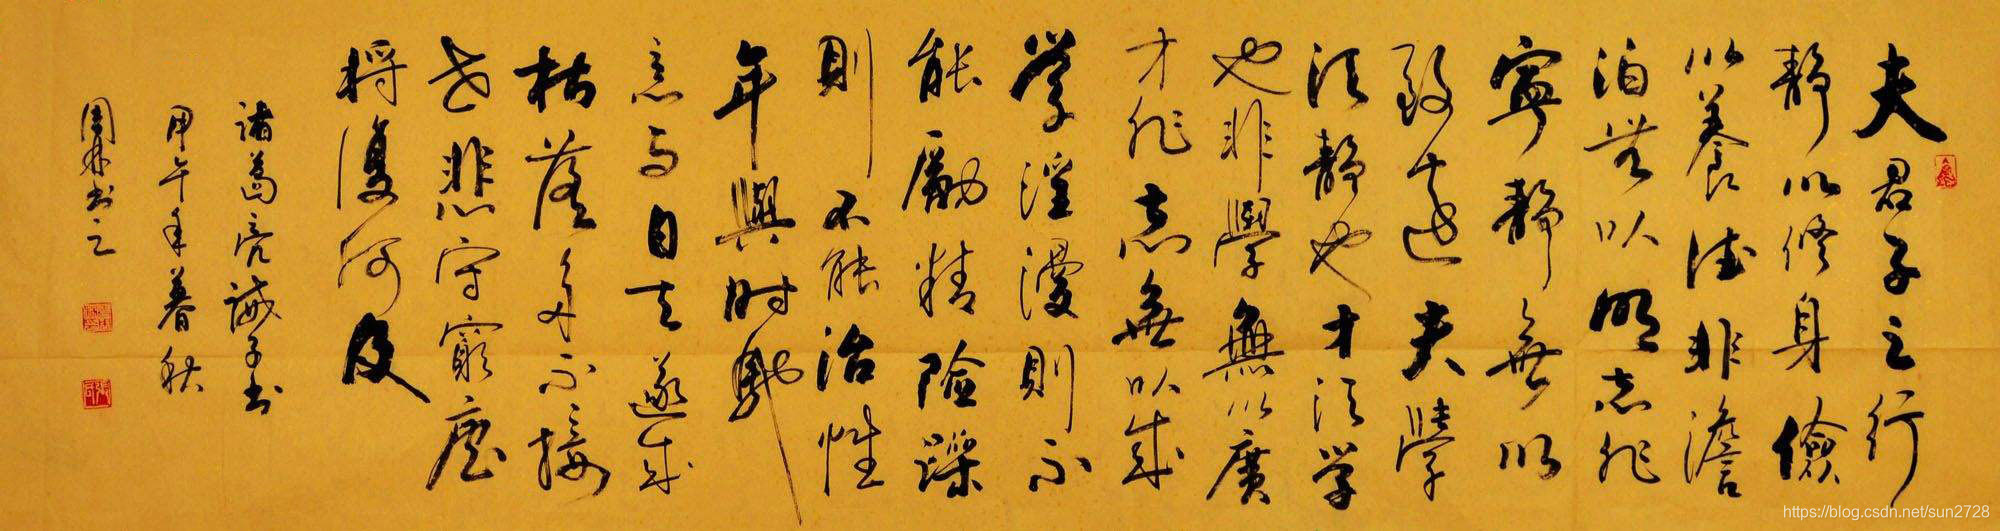 夫君子之行
静以修身儉
以養德非澹
泊無以明志非
寧靜無以
致遠夫學
須靜也才須学
也非學無以廣
才非志無以成
學淫漫則不
能勵精險躁
則不能治性
年與時馳
意与日去遂成
枯落多不接
世悲守窮廬
将復何及
諸葛亮誡子书
甲午年暮秋
周书之
https://blog.csdn.net/sun2728